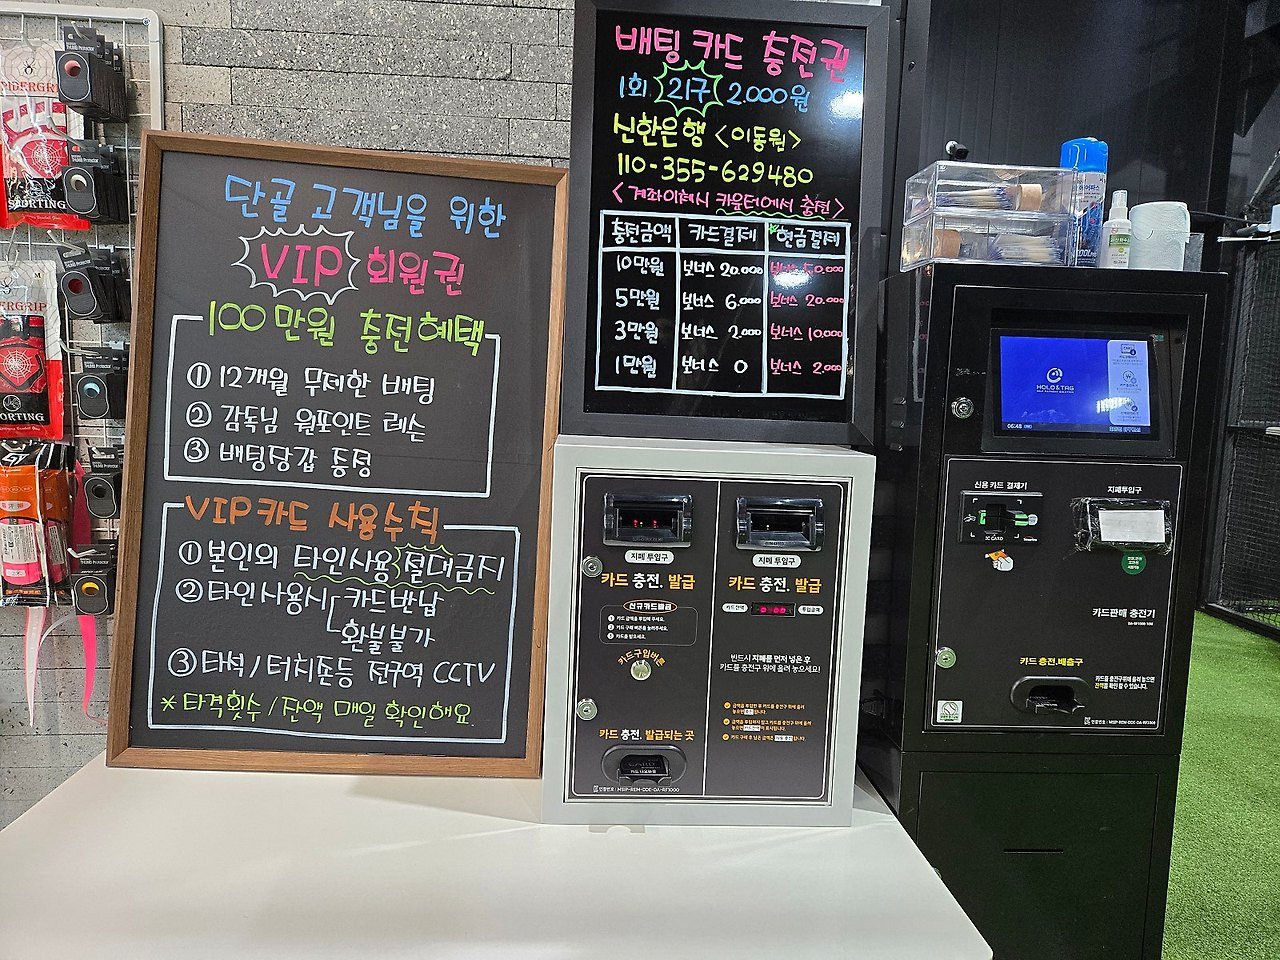 단골 고객님을 위한
VIP 회원권
100만원 충전혜택
① 12개월 무제한 배팅
② 감독님 원포인트 레슨
③ 배팅장갑 증정
VIP카드 사용수칙
① 본인외 타인사용 절대금지
② 타인사용시 카드반납
환불불가
③ 타석/터치존등 전구역 CCTV
* 타격횟수/잔액 매일 확인해요
배팅 카드 충전권
1회 21구 2.000원
신한은행 <이동원>
110-355-629480
<계좌이체시 카운터에서 충전>
충전금액 카드결제 현금결제
10만원 보너스 20.000 보너스 50.000
5만원 보너스 6.000 보너스 20.000
3만원 보너스 2.000 보너스 10.000
1만원 보너스 0 보너스 2.000
지폐 투입구
카드 충전. 발급
신규카드발급
카드구입버튼
카드 충전. 발급되는 곳
지폐 투입구
카드 충전. 발급
카드잔액 투입금액
반드시 지폐를 먼저 넣은 후
카드를 충전구 위에 올려 놓으세요!
HOLO & TAG
06:48
신용 카드 결제기
IC CARD
지폐투입구
카드판매 충전기
카드 충전.배출구
카드를 충전구위에 올려 놓으면
잔액을 확인 할 수 있습니다.
SPORTING